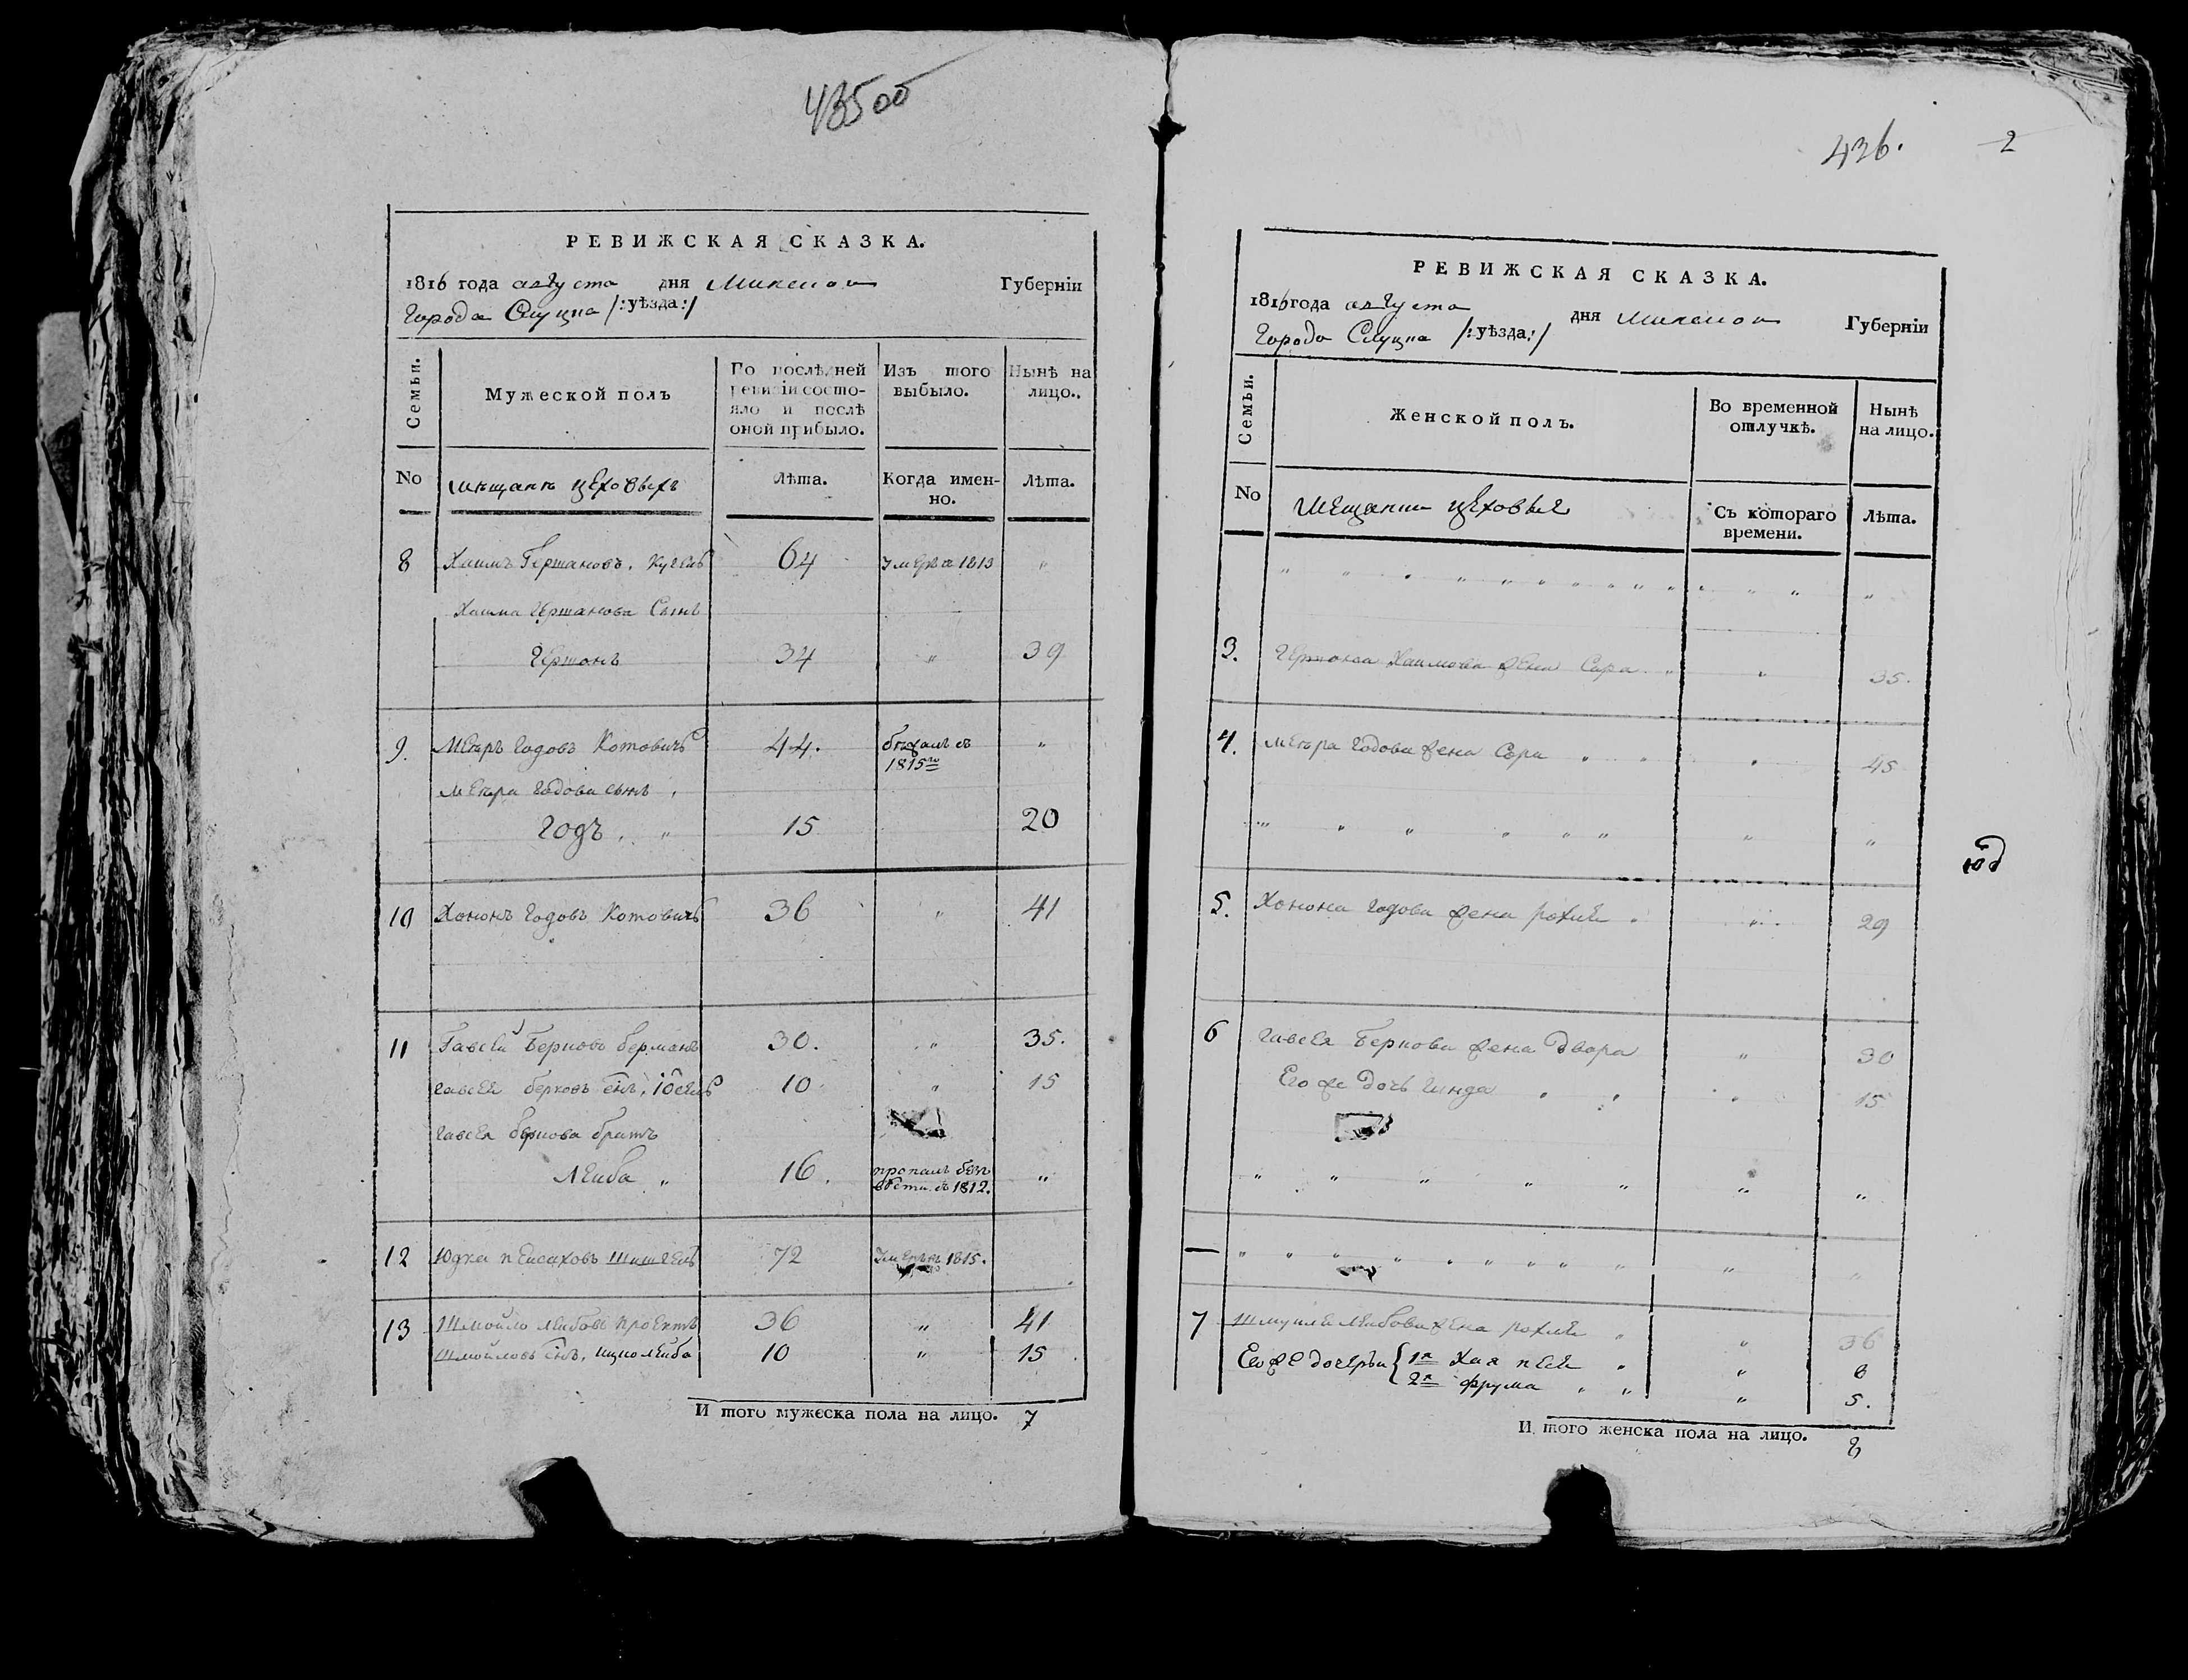 435 об
РЕВИЖСКАЯ СКАЗКА.
1816 года августа дня Минской Губернїи
Города Слуцка /:уѣзда:/
Семьи.
Мужеской полъ
По послѣдней ревизіи состояло и послѣ оной прибыло.
Изъ того выбыло.
Нынѣ на лицо.
No
мѣщанъ цеховыхъ
Лѣта.
Когда именно.
Лѣта.
8 Хаимъ Гершановъ, 64 умеръ 1813 "
Хаима Гершанова Сынъ
Гершонъ 34 " 39
9. Мееръ Годовъ Котовичъ 44. бежалъ съ 1815го "
Меера Годова сынъ,
Годъ. " 15 20
10 Хононъ Годовъ Котовичъ 36 " 41
11 Гавсей Берковъ берманъ 30. " 35.
Гавсея берковъ снъ, іосель 10 " 15
Гавсея беркова братъ
Лейба " 16. пропалъ безъ вѣсти съ 1812. "
12 Юдка пейсаховъ 72 умеръ 1815.
13 Шмойло лейбовъ проектъ 36 " 41
Шмойловъ снъ, ицколейба 10 " 15
И того мужеска пола на лицо. 7
436. 2
РЕВИЖСКАЯ СКАЗКА.
1816 года августа дня Минской Губернїи
Города Слуцка /:уѣзда:/
Семьи.
Женской полъ.
Во временной отлучкѣ.
Нынѣ на лицо.
No
Мещанки цеховые
Съ котораго времени.
Лѣта.
" " " " " " " " " " " " " " "
3. Гершона Хаимова жена Сара " " 35.
4. Меера Годова жена Сора " " " 45
" " " " " " " "
5. Хонона Годова жена рохля " " 29
6 Гавсея Беркова жена Двора " 30
Его же дочь Гинда " " " 15
" " " " " " "
— " " " " " " " " " " "
7 Шмуйла Лейбова жена рохля " " 36
Его же дочерьи { 1я Хая песя " " 8
2я фрума " " " 5.
И того женска пола на лицо. 8